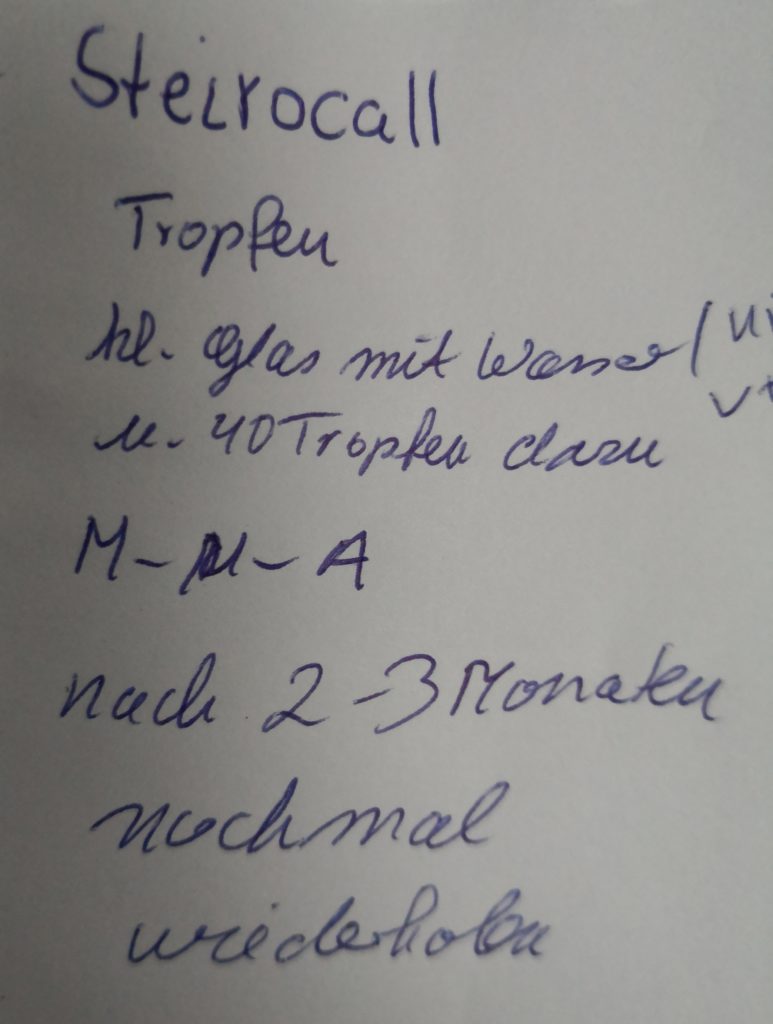 Steirocall
Tropfen
kl. Glas mit Wasser /
u. 40 Tropfen dazu
M - M - A
nach 2-3 Monaten
nochmal
wiederholen